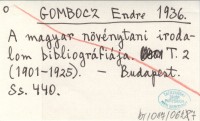 o GOMBOCZ Endre 1936.
A magyar növénytani iroda-
lom bibliográfiája. T. 2
(1901-1925). - Budapest.
Ss. 440.